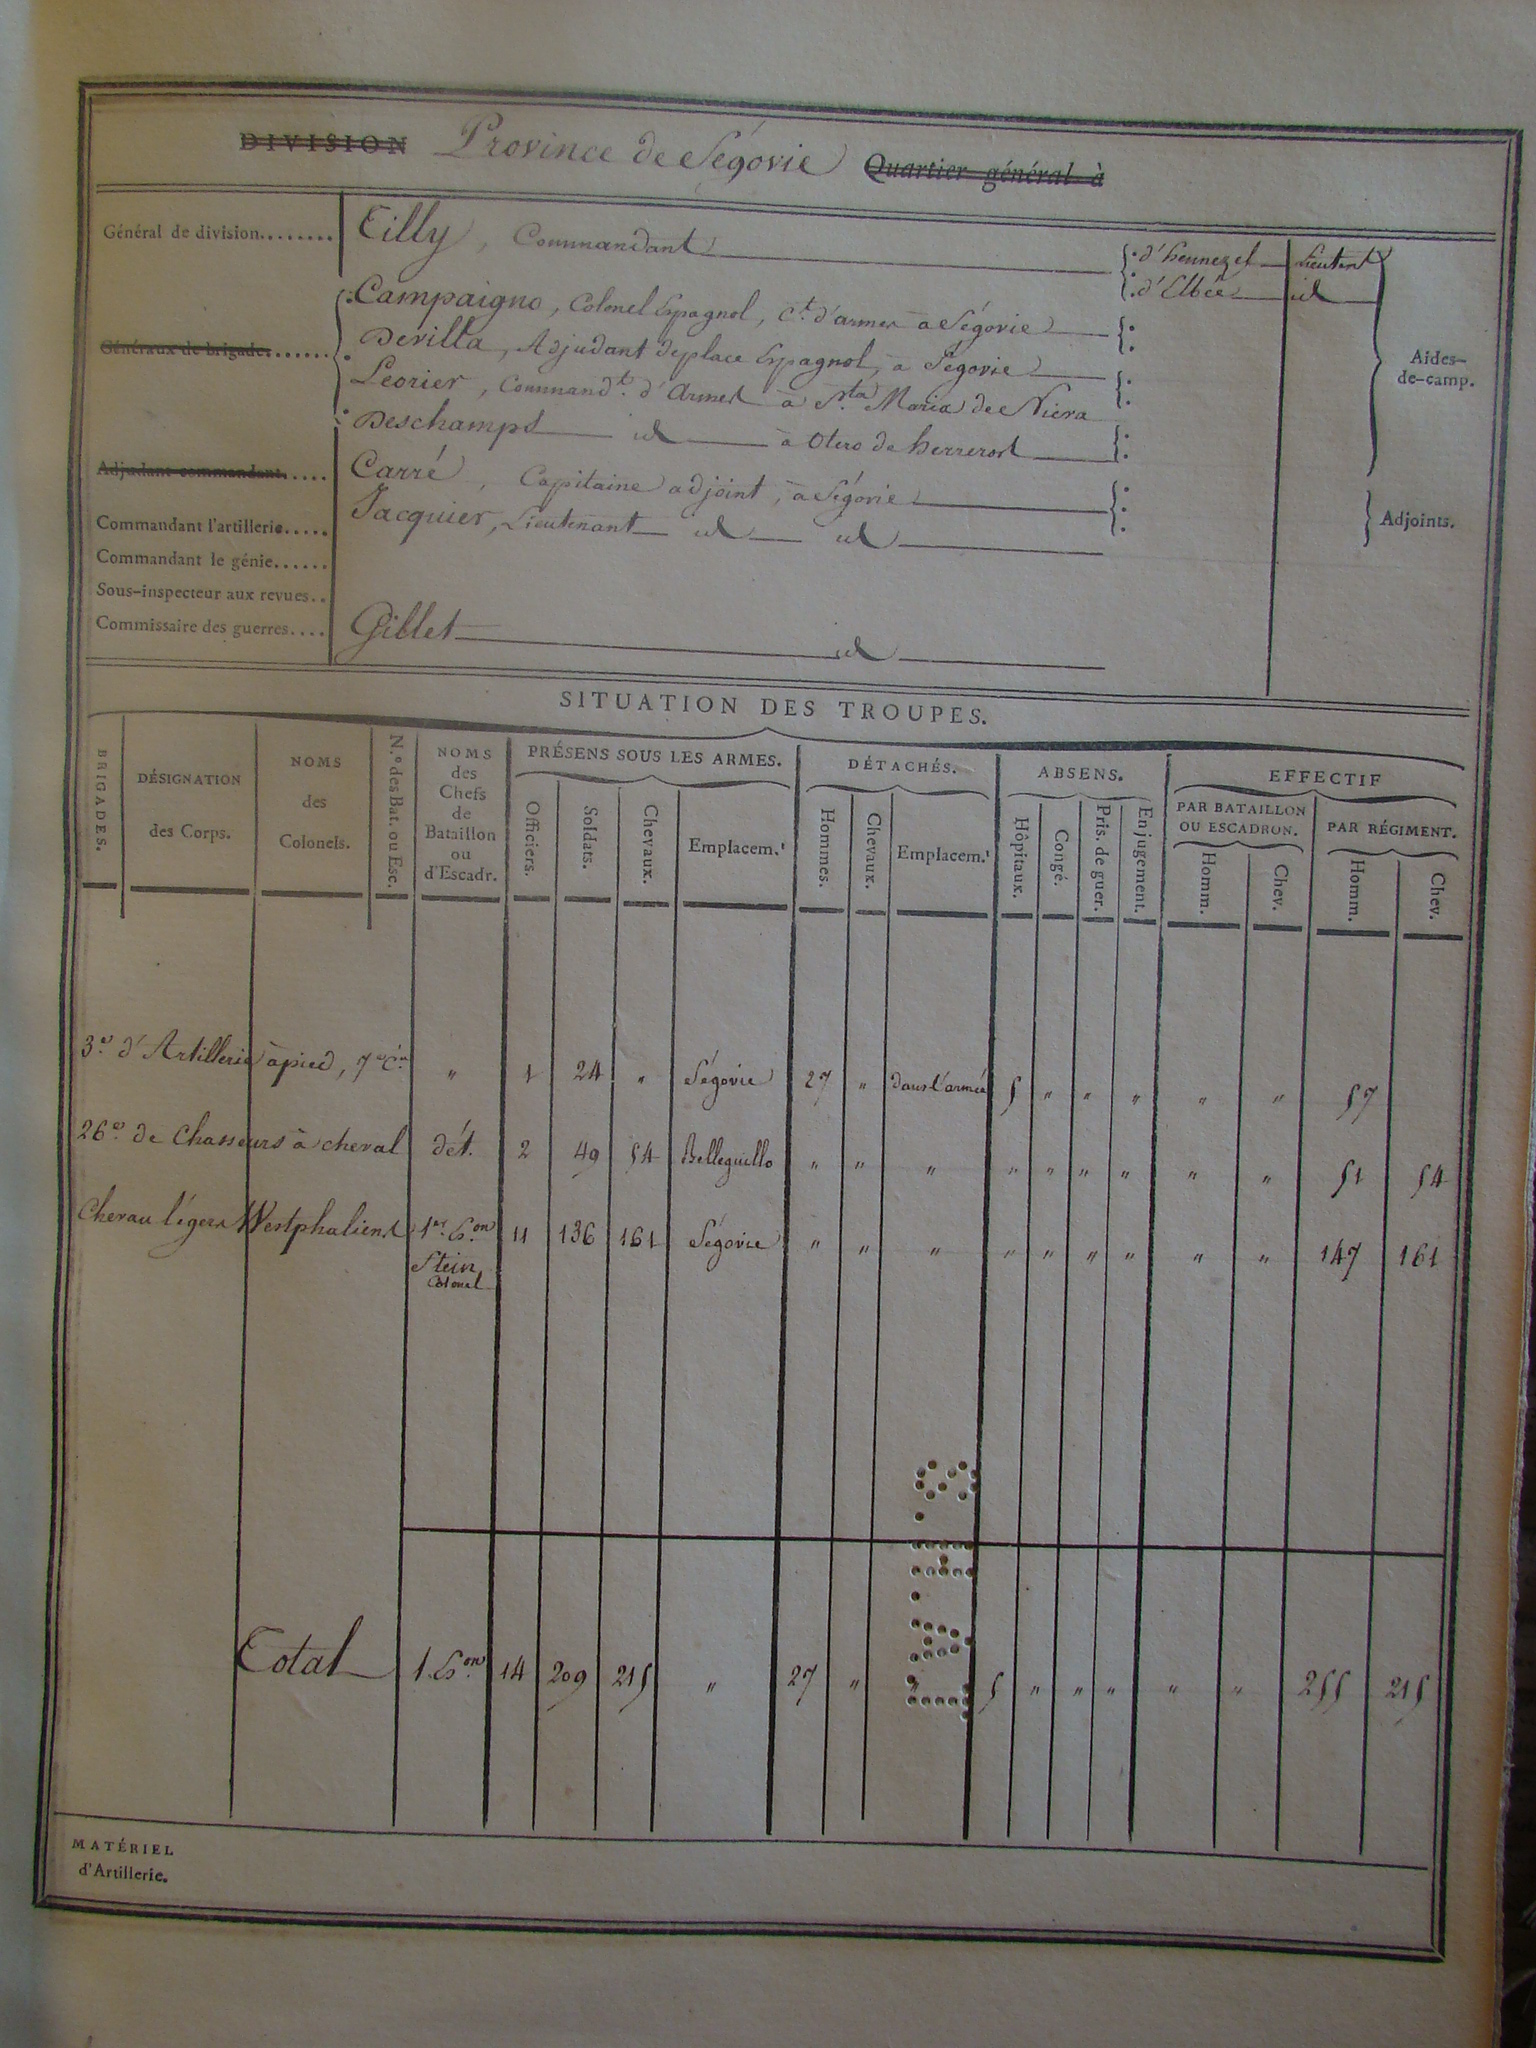 DIVISION Province de Ségovie Quartier général à
Général de division........ Tilly, Commandant d'hennezel Lieutent
d'Elbée id
Campaigno, Colonel Espagnol, Ct. d'armes à Ségovie
Généraux de brigade....... Devilla, Adjudant deplace Espagnol, à Ségovie
Aides-
de-camp.
Leorier, Command.t d'Armes à Sta Maria de Nieva
Deschamps id à Otero de herreros
Adjudant commandant..... Carré, Capitaine adjoint, à Ségovie
Commandant l'artillerie..... Jacquier, Lieutenant id id Adjoints.
Commandant le génie......
Sous-inspecteur aux revues..
Commissaire des guerres.... Gillet id
SITUATION DES TROUPES.
BRIGADES.
DÉSIGNATION
des Corps.
NOMS
des
Colonels.
N.º des Bat. ou Esc.
NOMS
des
Chefs
de
Bataillon
ou
d'Escadr.
PRÉSENS SOUS LES ARMES.
Officiers.
Soldats.
Chevaux.
Emplacem.t
DÉTACHÉS.
Hommes.
Chevaux.
Emplacem.t
ABSENS.
Hôpitaux.
Congé.
Pris. de guer.
En jugement.
EFFECTIF
PAR BATAILLON
OU ESCADRON.
Homm.
Chev.
PAR RÉGIMENT.
Homm.
Chev.
3.e d'Artillerie àpied, 7e Cie " 1 24 " Ségovie 27 " dans l'armée 5 " " " " " 57
26.e de Chasseurs à cheval dét. 2 49 54 Belleguillo " " " " " " " " " 51 54
Chevau légers Westphaliens 1er Eson 11 136 161 Ségovie " " " " " " " " " 147 161
Stein
Colonel
Total 1 Eson 14 209 215 " 27 " " 5 " " " " " 255 215
MATÉRIEL
d'Artillerie.